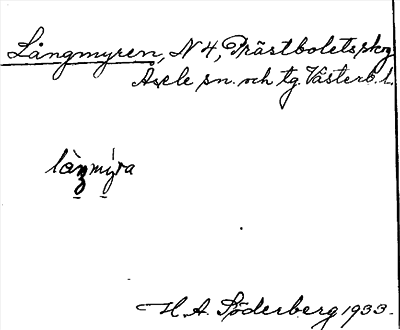 Långmyren, N 4, Prästbolets skog
Åsele sn. och tg. Västerb. l.
H. A. Söderberg 1933.